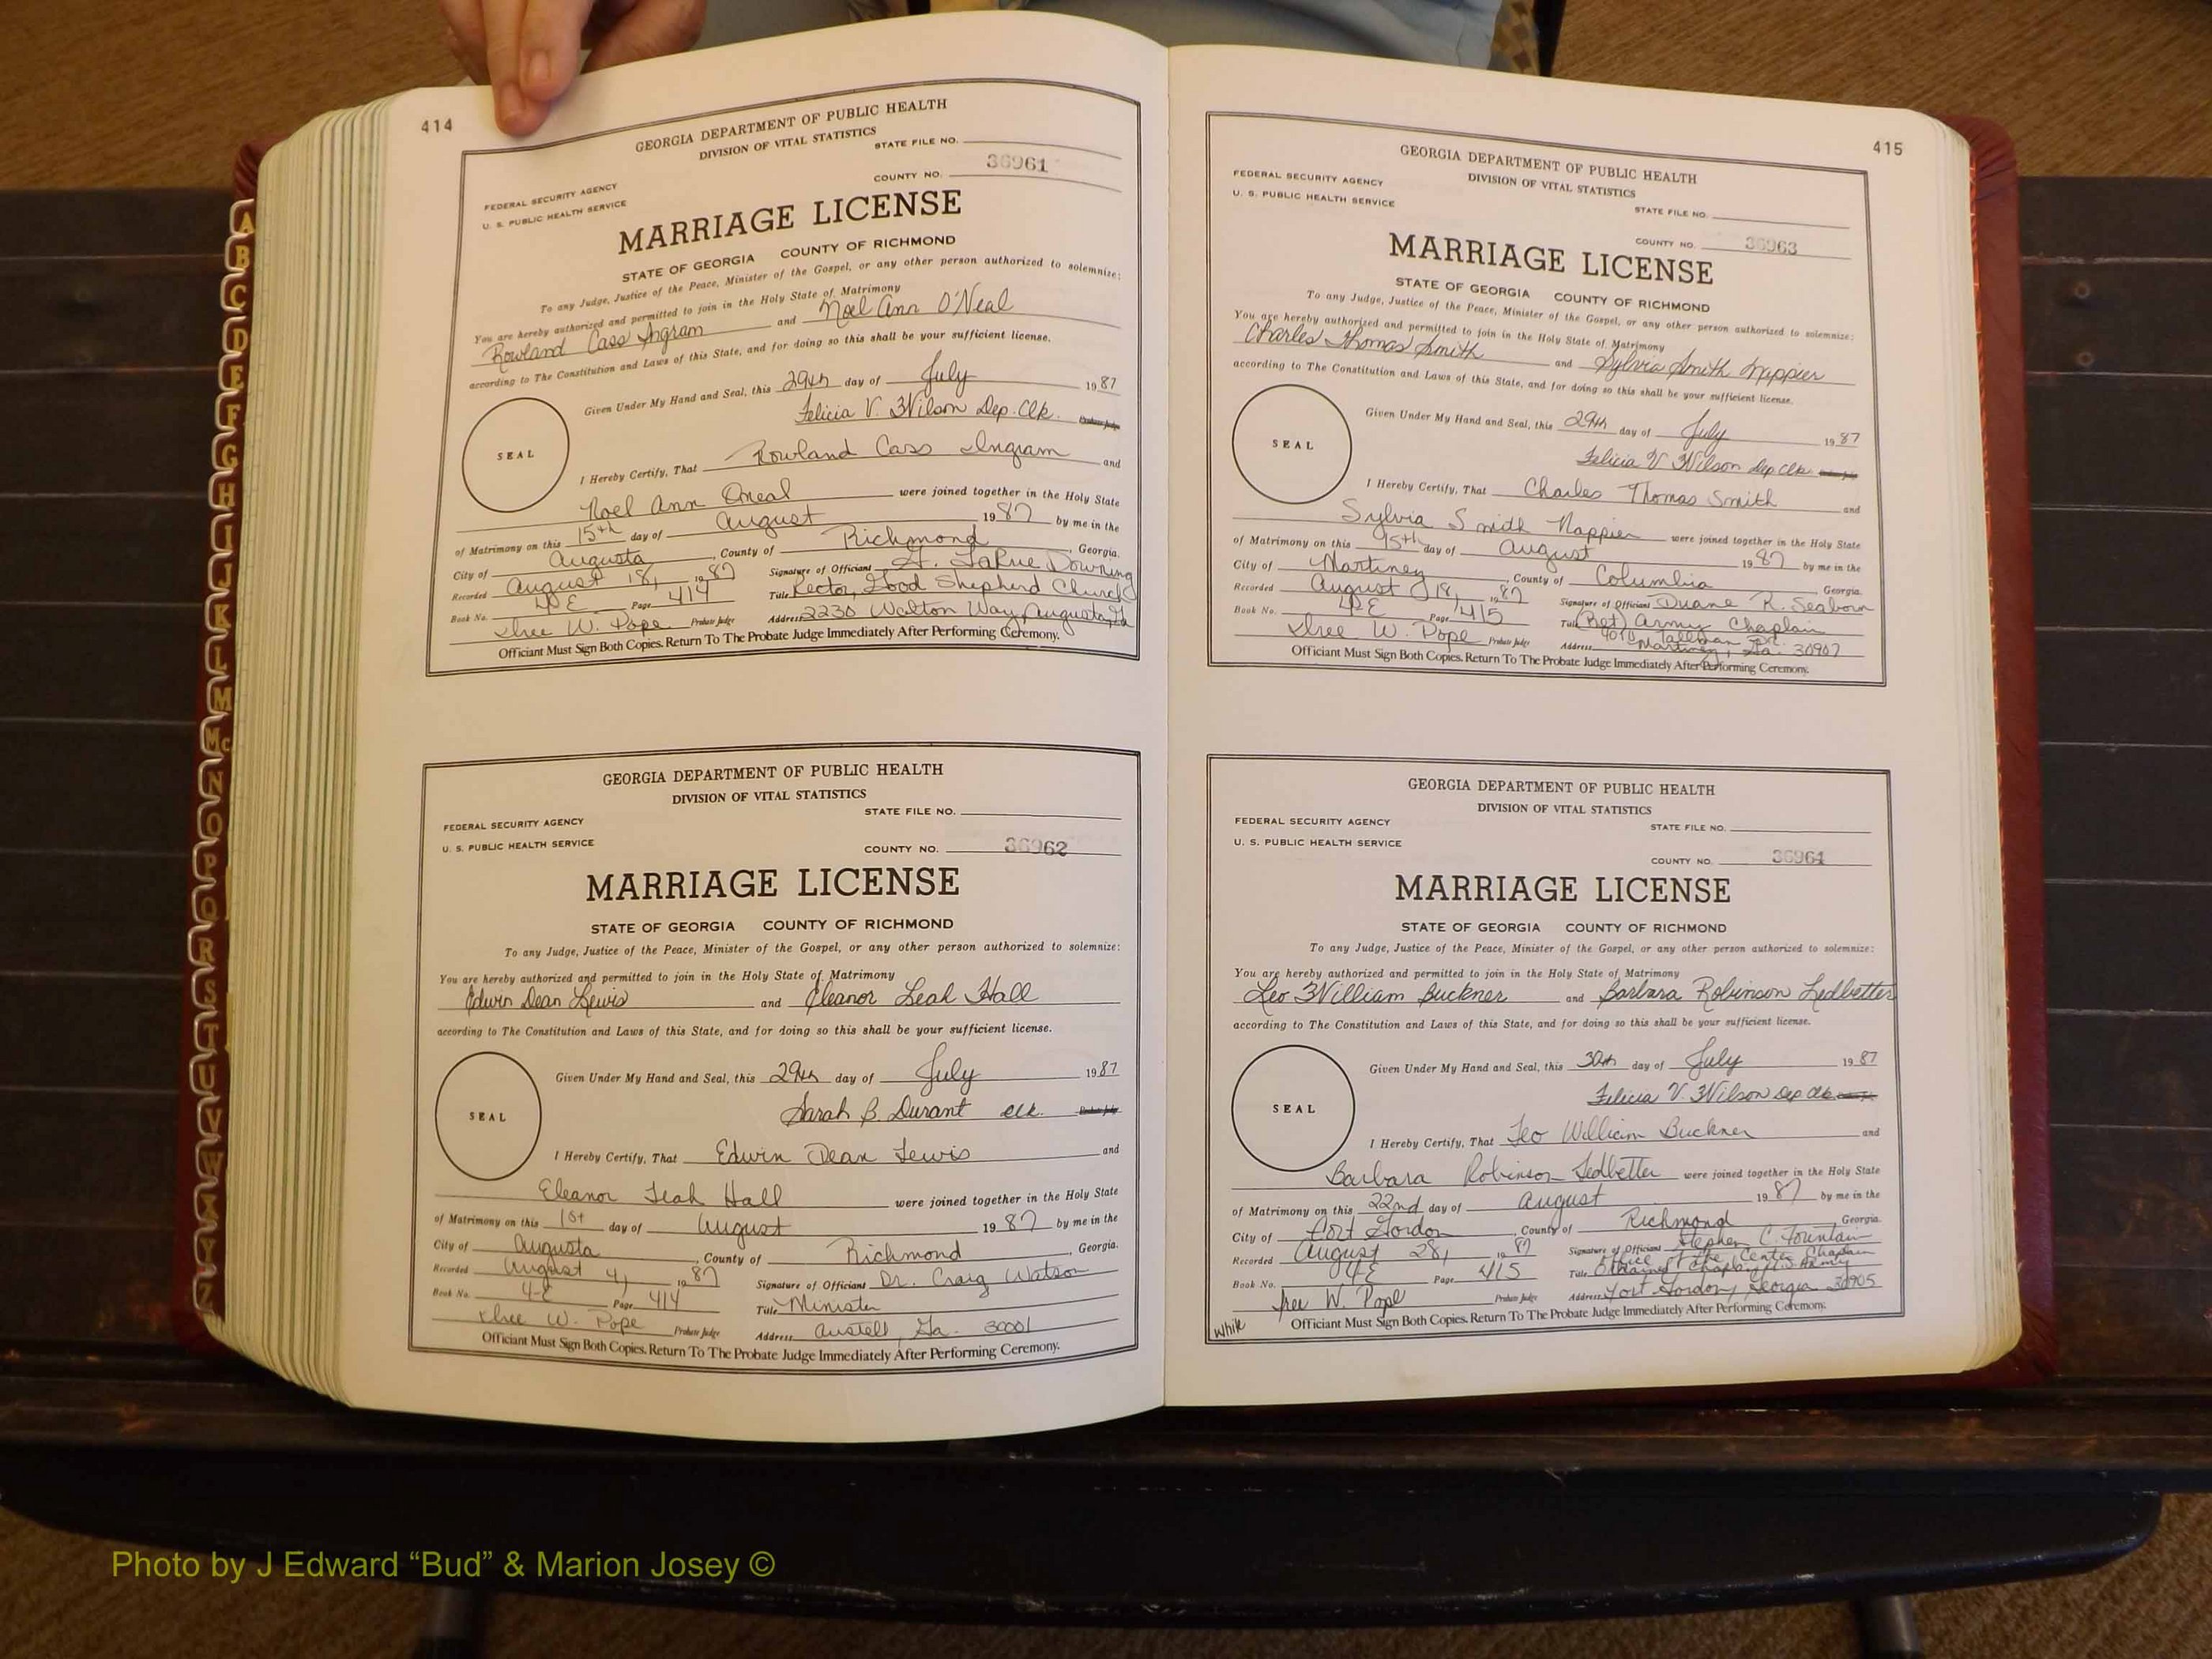 414
GEORGIA DEPARTMENT OF PUBLIC HEALTH
DIVISION OF VITAL STATISTICS
STATE FILE NO.
FEDERAL SECURITY AGENCY
U. S. PUBLIC HEALTH SERVICE
COUNTY NO. 36961
MARRIAGE LICENSE
STATE OF GEORGIA COUNTY OF RICHMOND
To any Judge, Justice of the Peace, Minister of the Gospel, or any other person authorized to solemnize:
You are hereby authorized and permitted to join in the Holy State of Matrimony
Rowland Cass Ingram and Noel Ann O'Neal
according to The Constitution and Laws of this State, and for doing so this shall be your sufficient license.
Given Under My Hand and Seal, this 29th day of July 1987
SEAL
Felicia V. Wilson Dep. Clk. Probate Judge
I Hereby Certify, That Rowland Cass Ingram and
Noel Ann Oneal were joined together in the Holy State
of Matrimony on this 15th day of August 1987 by me in the
City of Augusta, County of Richmond, Georgia.
Recorded August 18, 1987 Signature of Officiant LaRue Downing
Book No. 4E Page 414 Title Rector, Good Shepherd Church
Address 2230 Walton Way, Augusta, Ga
W. Pope Probate Judge
Officiant Must Sign Both Copies. Return To The Probate Judge Immediately After Performing Ceremony.
GEORGIA DEPARTMENT OF PUBLIC HEALTH
DIVISION OF VITAL STATISTICS
STATE FILE NO.
FEDERAL SECURITY AGENCY
U. S. PUBLIC HEALTH SERVICE
COUNTY NO. 36962
MARRIAGE LICENSE
STATE OF GEORGIA COUNTY OF RICHMOND
To any Judge, Justice of the Peace, Minister of the Gospel, or any other person authorized to solemnize:
You are hereby authorized and permitted to join in the Holy State of Matrimony
Edwin Dean Lewis and Eleanor Leah Hall
according to The Constitution and Laws of this State, and for doing so this shall be your sufficient license.
Given Under My Hand and Seal, this 29th day of July 1987
SEAL
Sarah B. Durant Clk. Probate Judge
I Hereby Certify, That Edwin Dean Lewis and
Eleanor Leah Hall were joined together in the Holy State
of Matrimony on this 1st day of August 1987 by me in the
City of Augusta, County of Richmond, Georgia.
Recorded August 4, 1987 Signature of Officiant Dr. Craig Watson
Book No. 4-E Page 414 Title Minister
W. Pope Probate Judge Address Austell, Ga. 30001
Officiant Must Sign Both Copies. Return To The Probate Judge Immediately After Performing Ceremony.
415
GEORGIA DEPARTMENT OF PUBLIC HEALTH
DIVISION OF VITAL STATISTICS
FEDERAL SECURITY AGENCY
U. S. PUBLIC HEALTH SERVICE
STATE FILE NO.
COUNTY NO. 36963
MARRIAGE LICENSE
STATE OF GEORGIA COUNTY OF RICHMOND
To any Judge, Justice of the Peace, Minister of the Gospel, or any other person authorized to solemnize:
You are hereby authorized and permitted to join in the Holy State of Matrimony
Charles Thomas Smith and Sylvia Smith Nappier
according to The Constitution and Laws of this State, and for doing so this shall be your sufficient license.
Given Under My Hand and Seal, this 29th day of July 1987
SEAL
Felicia V Wilson Dep Clk.
I Hereby Certify, That Charles Thomas Smith and
Sylvia Smith Nappier were joined together in the Holy State
of Matrimony on this 15th day of August 1987 by me in the
City of Martinez, County of Columbia Georgia.
Recorded August 18, 1987 Signature of Officiant Duane R. Seaborn
Book No. 4E Page 415 Title (Ret) Army Chaplain
W. Pope Probate Judge Address Tallman Dr. Martinez, Ga. 30907
Officiant Must Sign Both Copies. Return To The Probate Judge Immediately After Performing Ceremony.
GEORGIA DEPARTMENT OF PUBLIC HEALTH
DIVISION OF VITAL STATISTICS
FEDERAL SECURITY AGENCY
STATE FILE NO.
U. S. PUBLIC HEALTH SERVICE
COUNTY NO. 36964
MARRIAGE LICENSE
STATE OF GEORGIA COUNTY OF RICHMOND
To any Judge, Justice of the Peace, Minister of the Gospel, or any other person authorized to solemnize:
You are hereby authorized and permitted to join in the Holy State of Matrimony
Leo William Buckner and Barbara Robinson Ledbetter
according to The Constitution and Laws of this State, and for doing so this shall be your sufficient license.
Given Under My Hand and Seal, this 30th day of July 1987
SEAL
Felicia V. Wilson Dep Clk.
I Hereby Certify, That Leo William Buckner and
Barbara Robinson Ledbetter were joined together in the Holy State
of Matrimony on this 22nd day of August 1987 by me in the
City of Fort Gordon, County of Richmond Georgia.
Recorded August 28, 1987 Signature of Officiant Stephen C. Fountain
Office of the Center Chaplain
Book No. 4E Page 415 Title Ordained Chaplain, U.S. Army
W. Pope Probate Judge Address Fort Gordon, Georgia 30905
White Officiant Must Sign Both Copies. Return To The Probate Judge Immediately After Performing Ceremony.
A
B
C
D
E
F
G
H
I
J
K
L
M
Mc
N
O
P
Q
R
S
T
U
V
W
X
Y
Z
Photo by J Edward “Bud” & Marion Josey ©